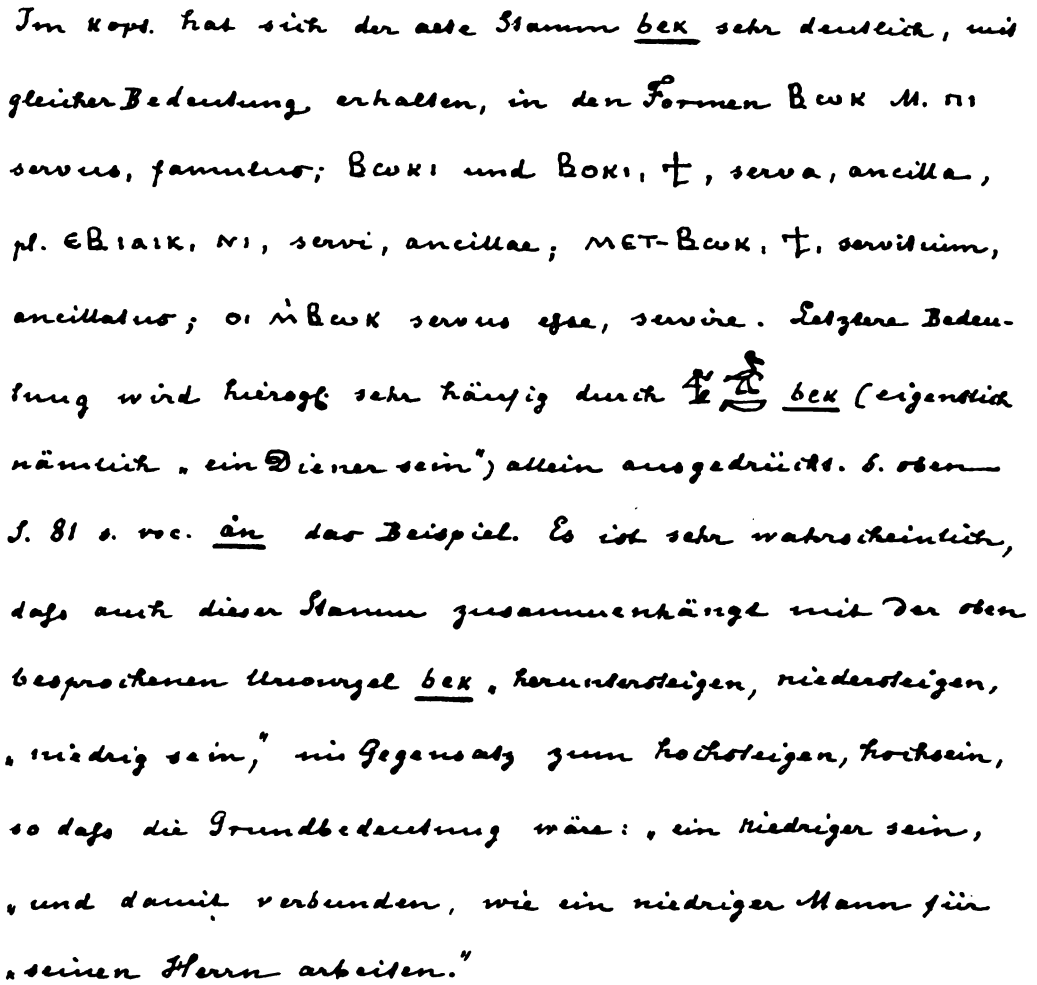 Im kopt. hat sich der alte Stamm bek sehr deutlich, mit
gleicher Bedeutung, erhalten, in den Formen ⲃⲱⲕ M. ⲡⲓ
servus, famulus; ⲃⲱⲕⲓ und ⲃⲟⲕⲓ, ϯ, serva, ancilla,
pl. ⲉⲃⲓⲁⲓⲕ, ⲛⲓ, servi, ancillae; ⲙⲉⲧ-ⲃⲱⲕ, ϯ, servitium,
ancillatus; ⲟⲓ ⲙ̀ⲃⲱⲕ servus esse, servire. Letztere Bedeu-
tung wird hierogl. sehr häufig durch bek (eigentlich
nämlich „ein Diener sein“) allein ausgedrückt. s. oben
S. 81 s. voc. ȧn das Beispiel. Es ist sehr wahrscheinlich,
daſs auch dieser Stamm zusammenhängt mit der oben
besprochenen Urwurzel bek „heruntersteigen, niedersteigen,
„niedrig sein,“ im Gegensatz zum hochsteigen, hochsein,
so daſs die Grundbedeutung wäre: „ein niedriger sein,
„und damit verbunden, wie ein niedriger Mann für
„seinen Herrn arbeiten.“